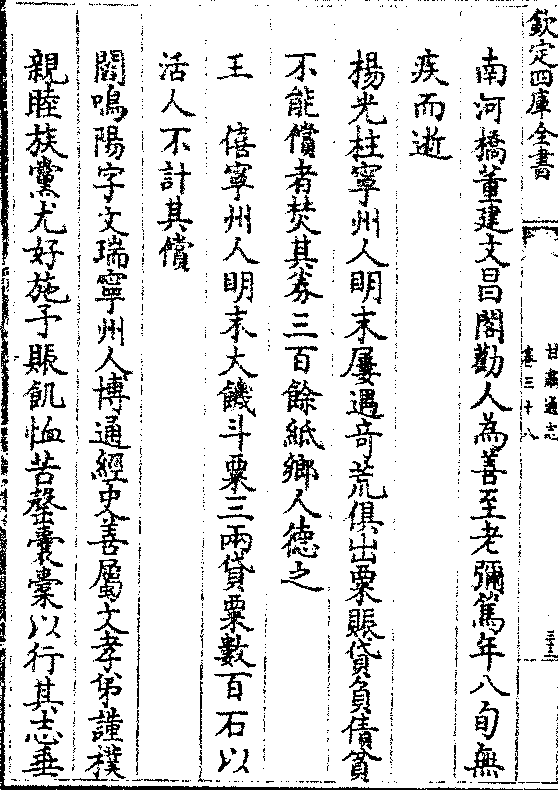 欽定四庫全書
甘肅通志
卷三十八
三十三
南河橋董建文昌閣勸人為善至老彌篤年八旬無
疾而逝
楊光柱寧州人明末屢遇竒荒俱出粟賑貸負債貧
不能償者焚其券三百餘紙鄉人徳之
王　僖寧州人明末大饑斗粟三兩貸粟數百石以
活人不計其償
閻鳴陽字文瑞寧州人博通經史善屬文孝弟謹樸
親睦族黨尤好施予賑飢恤苦罄囊橐以行其志垂